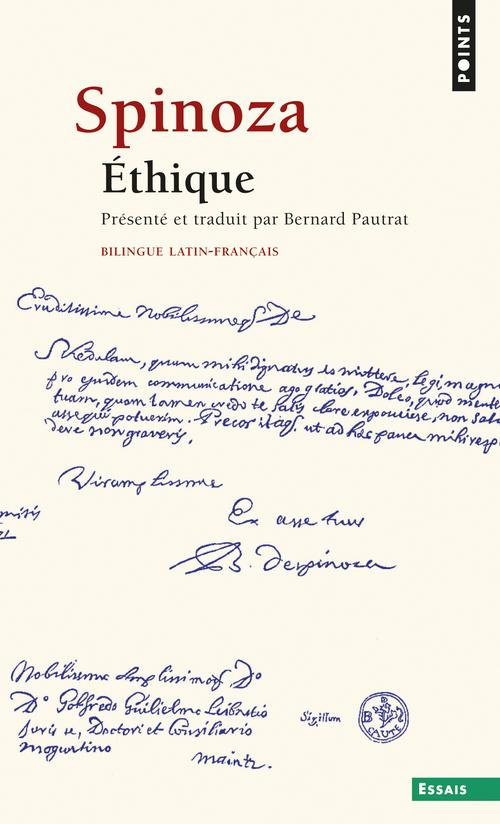 POINTS
Spinoza
Éthique
Présenté et traduit par Bernard Pautrat
BILINGUE LATIN-FRANÇAIS
Eruditissime Nobilissimeqꝫ De
Schedulam, quam mihi dignatus es mittere, legi, magn
pro ejusdem communicatione ago gratias, Doleo, quod mente
tuam, quam tamen credo te satis clare exposuisse, non sat
assequi potuerim. Precor itaqꝫ ut ad hæc pauca mihi resp
ne graveris,
Vir amplissime
Ex asse tuus
B. despinoza
Nobilissimo Amplissimoqꝫ Do
Do Gotfredo Guilielmo Leibnitio
Juris u, Doctori et Consiliario
Moguntino
Maintz.
Sigillum
B D S
CAUTE
ESSAIS